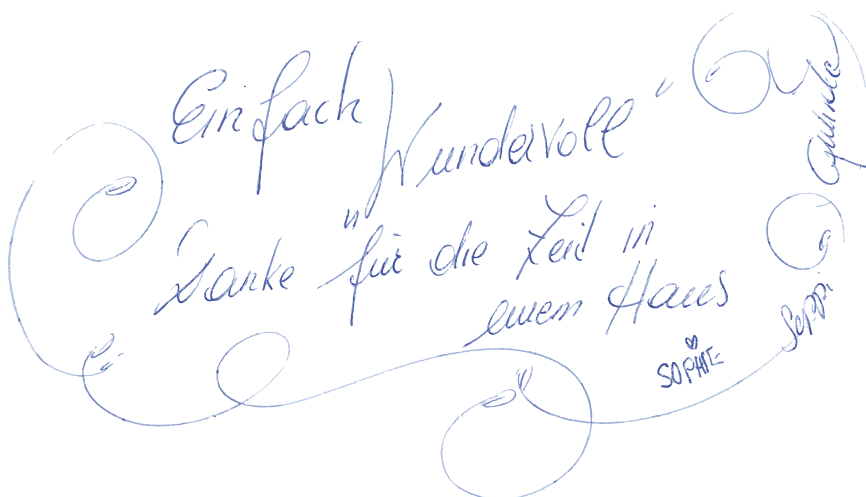 Einfach
„Wundervoll“
Danke für die Zeit in
eurem Haus
SOPHIE
Seppi